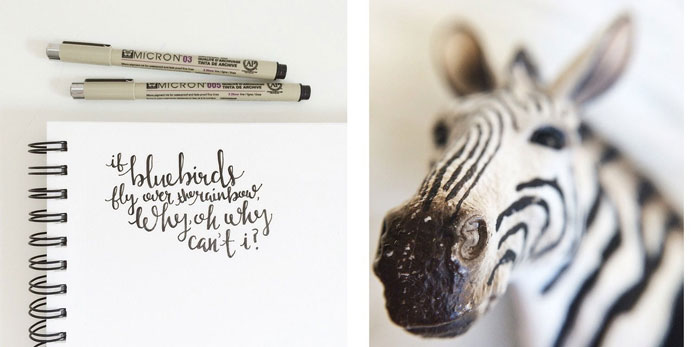 MICRON 03
TINTA DE ARCHIVE
MICRON 005
TINTA DE ARCHIVE
if
bluebirds
fly over the rainbow,
Why, oh why
can't i?